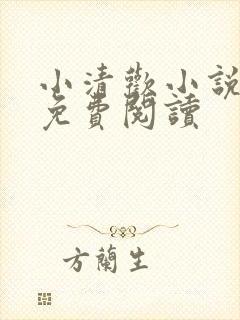 小清歡小說
免費閱讀
方蘭生